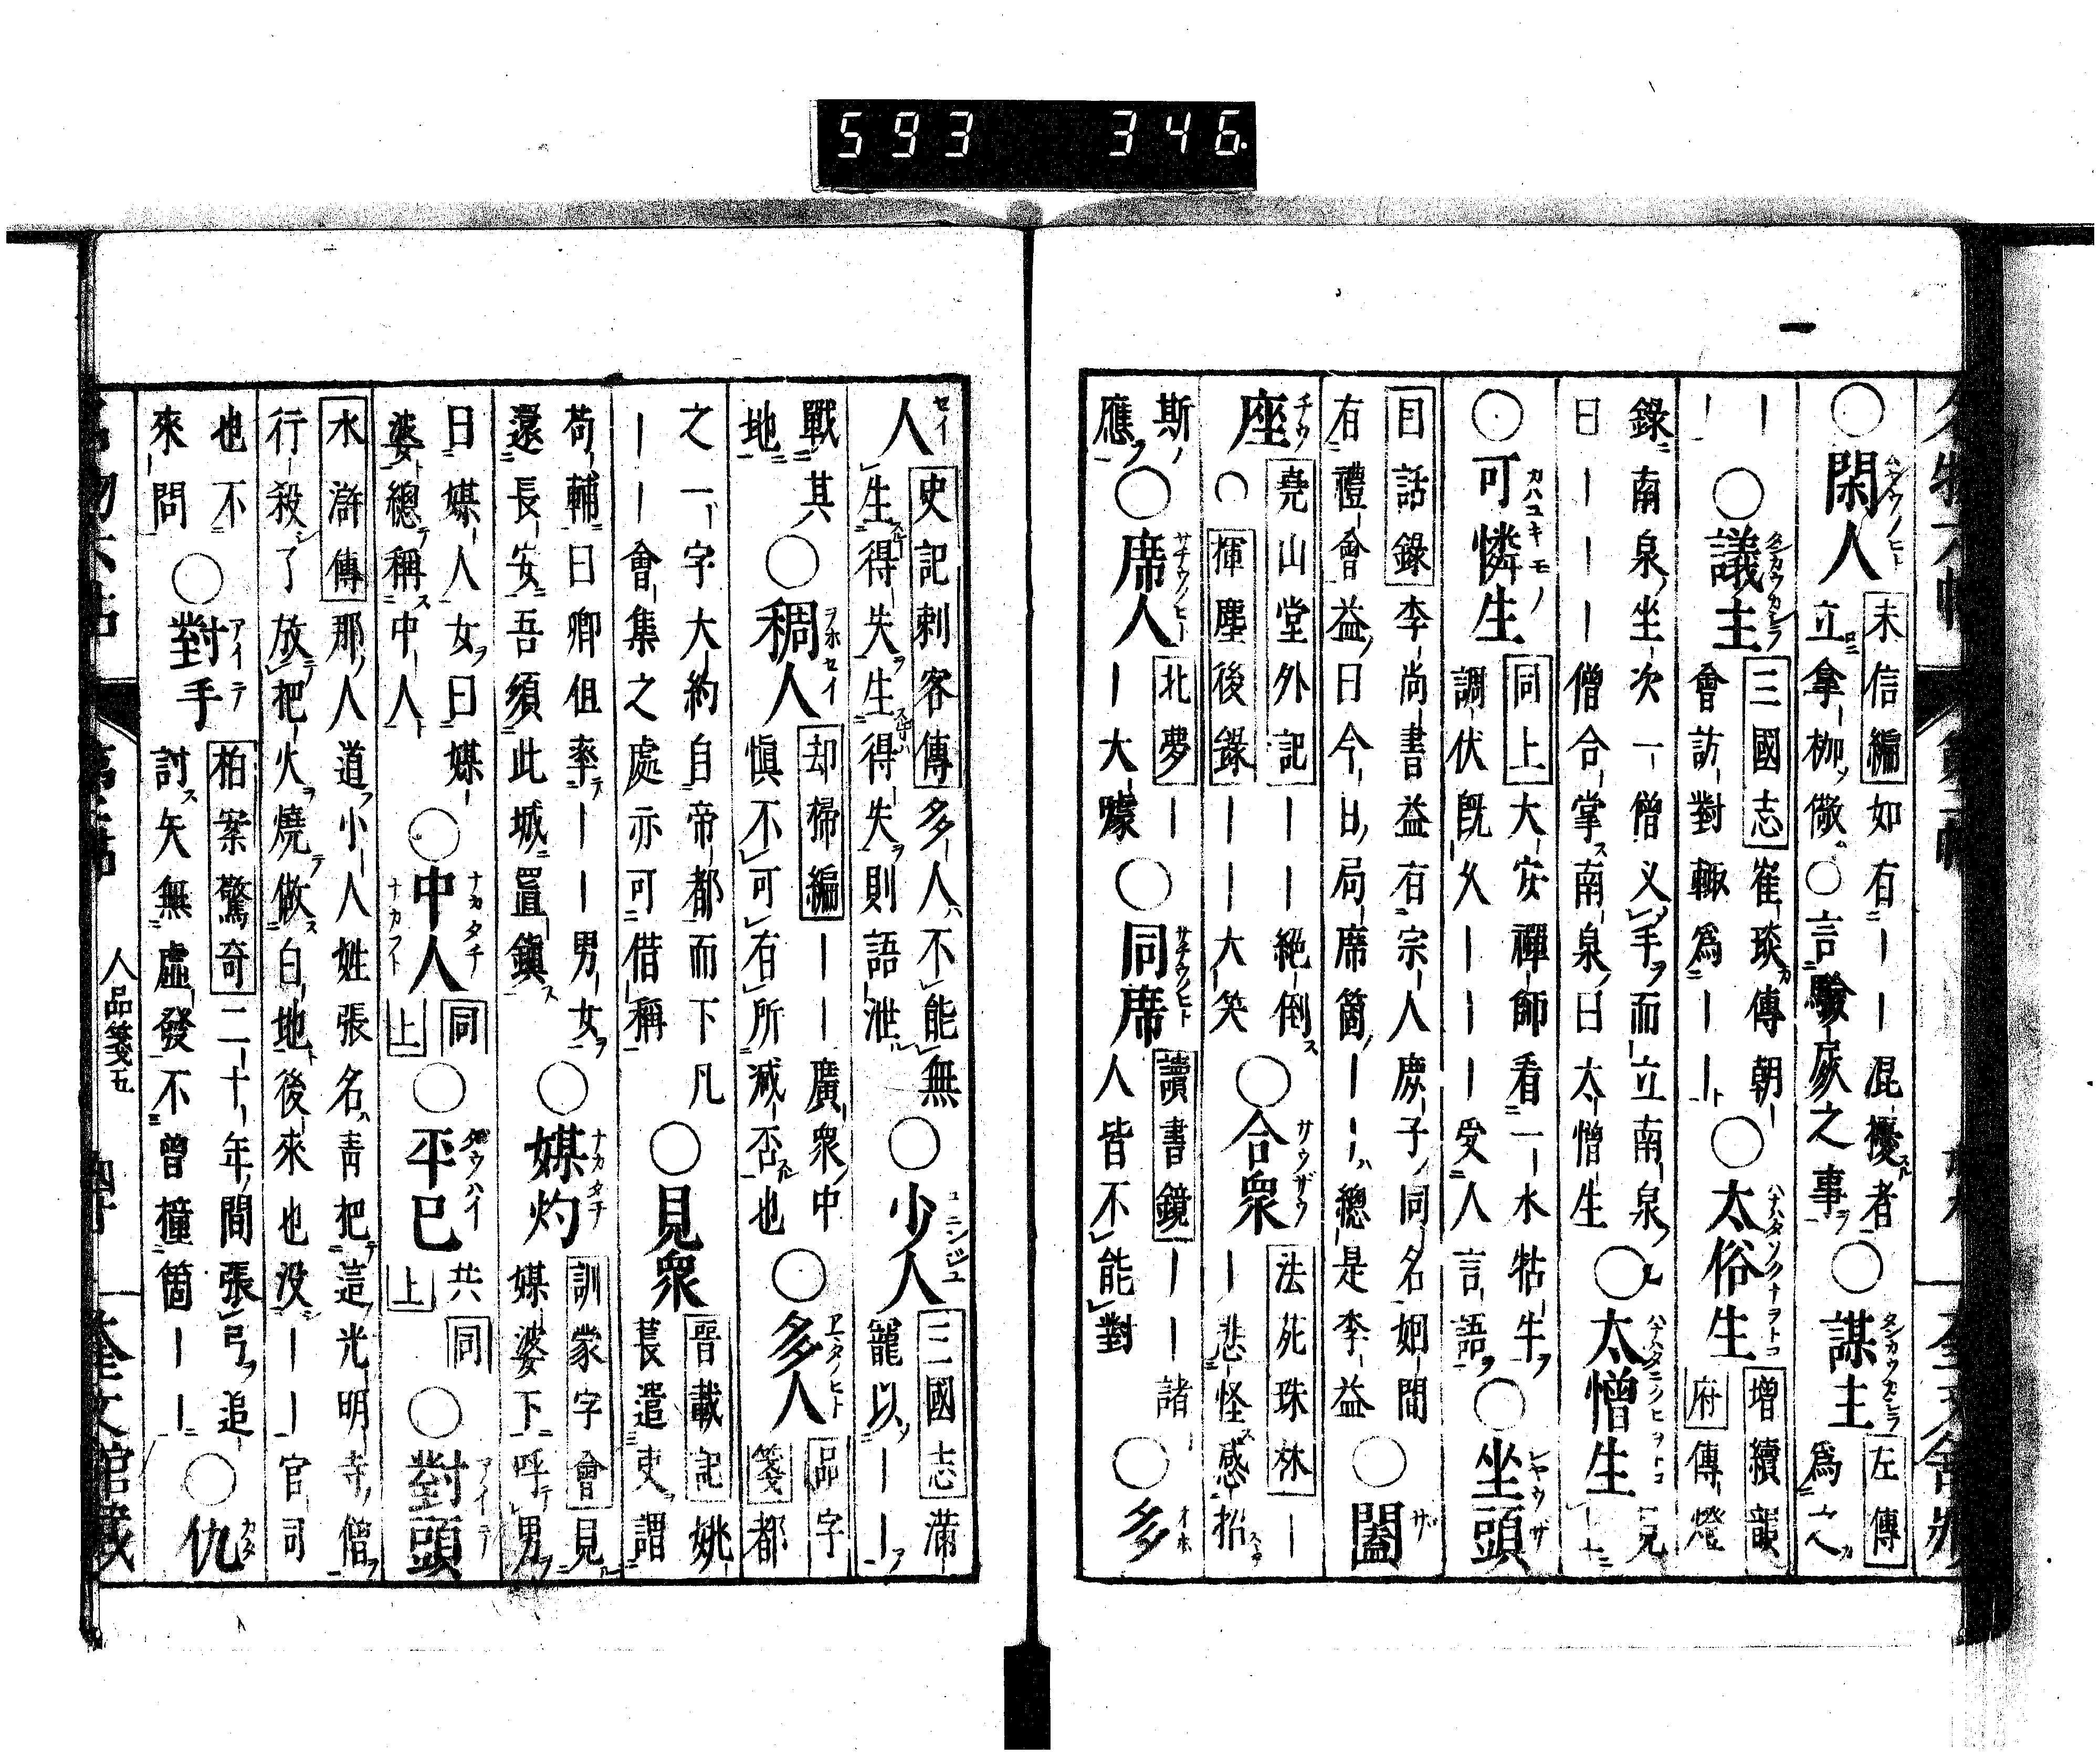 593 346
○閑人 未信編如有――混擾者
立拿枷做○言驗厥之事
○謀主 左傳
為之人
―
― ○議主 三國志崔琰傳朝
會訪對輙為――
○太俗生 增續韻
府傳燈
錄南泉坐次一僧义手而立南泉
曰―――僧合掌南泉曰太憎生
○太憎生 見
上
○可憐生 同上大安禪師看一水牯牛
調伏既久―――受人言語
○坐頭
因話錄李尚書益有宗人庶子同名姻間
有禮會益曰今日局席箇――總是李益
○闔
座 堯山堂外記―――絕倒
○揮塵後錄――大笑
○合衆 法苑珠林―
―悲怪感招
斯
應 ○席人 北夢―
―大噱
○同席 讀書鏡――諸
人皆不能對
○多
人 史記刺客傳多人不能無
生得失生得失則語泄
○少人 三國志滿
寵以――
戰其
地 ○稠人 却掃編――廣衆中
慎不可有所減否也
○多人 品字
箋都
之一字大約自帝都而下凡
―――會集之處亦可借稱
○見衆 晋載記姚
萇遣吏謂
苟輔曰卿但率――男女
還長安吾須此城置鎮
○媒灼 訓蒙字會見
媒婆下呼男
曰媒人女曰媒
婆總稱中人
○中人 同
上
○平巳 共同
上
○對頭
水滸傳那人道小人姓張名青把這光明寺僧
行殺了放把火燒做白地後來也没――官司
也不
來問 ○對手 柏案驚奇二十年間張弓追
討矢無虛發不曾撞箇――
○仇
人品箋五